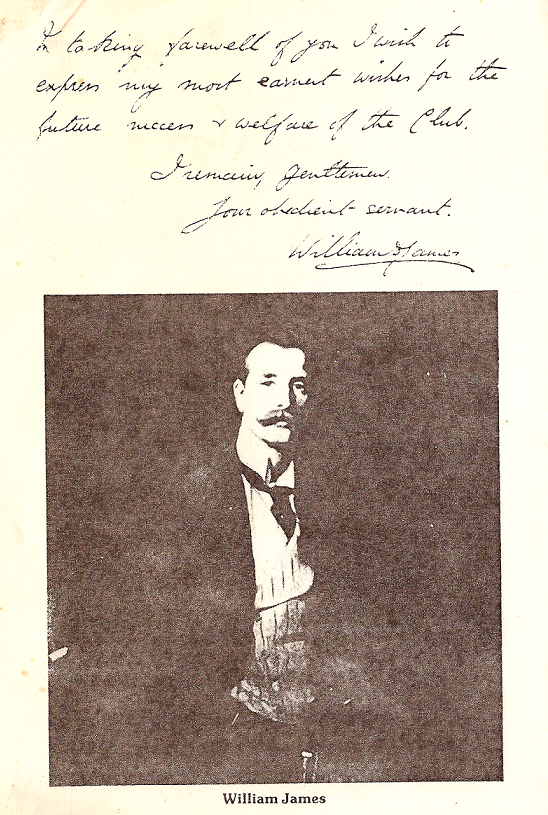 In taking farewell of you I wish to
express my most earnest wishes for the
future success & welfare of the Club.
I remain, gentlemen.
Your obedient servant.
William James
William James